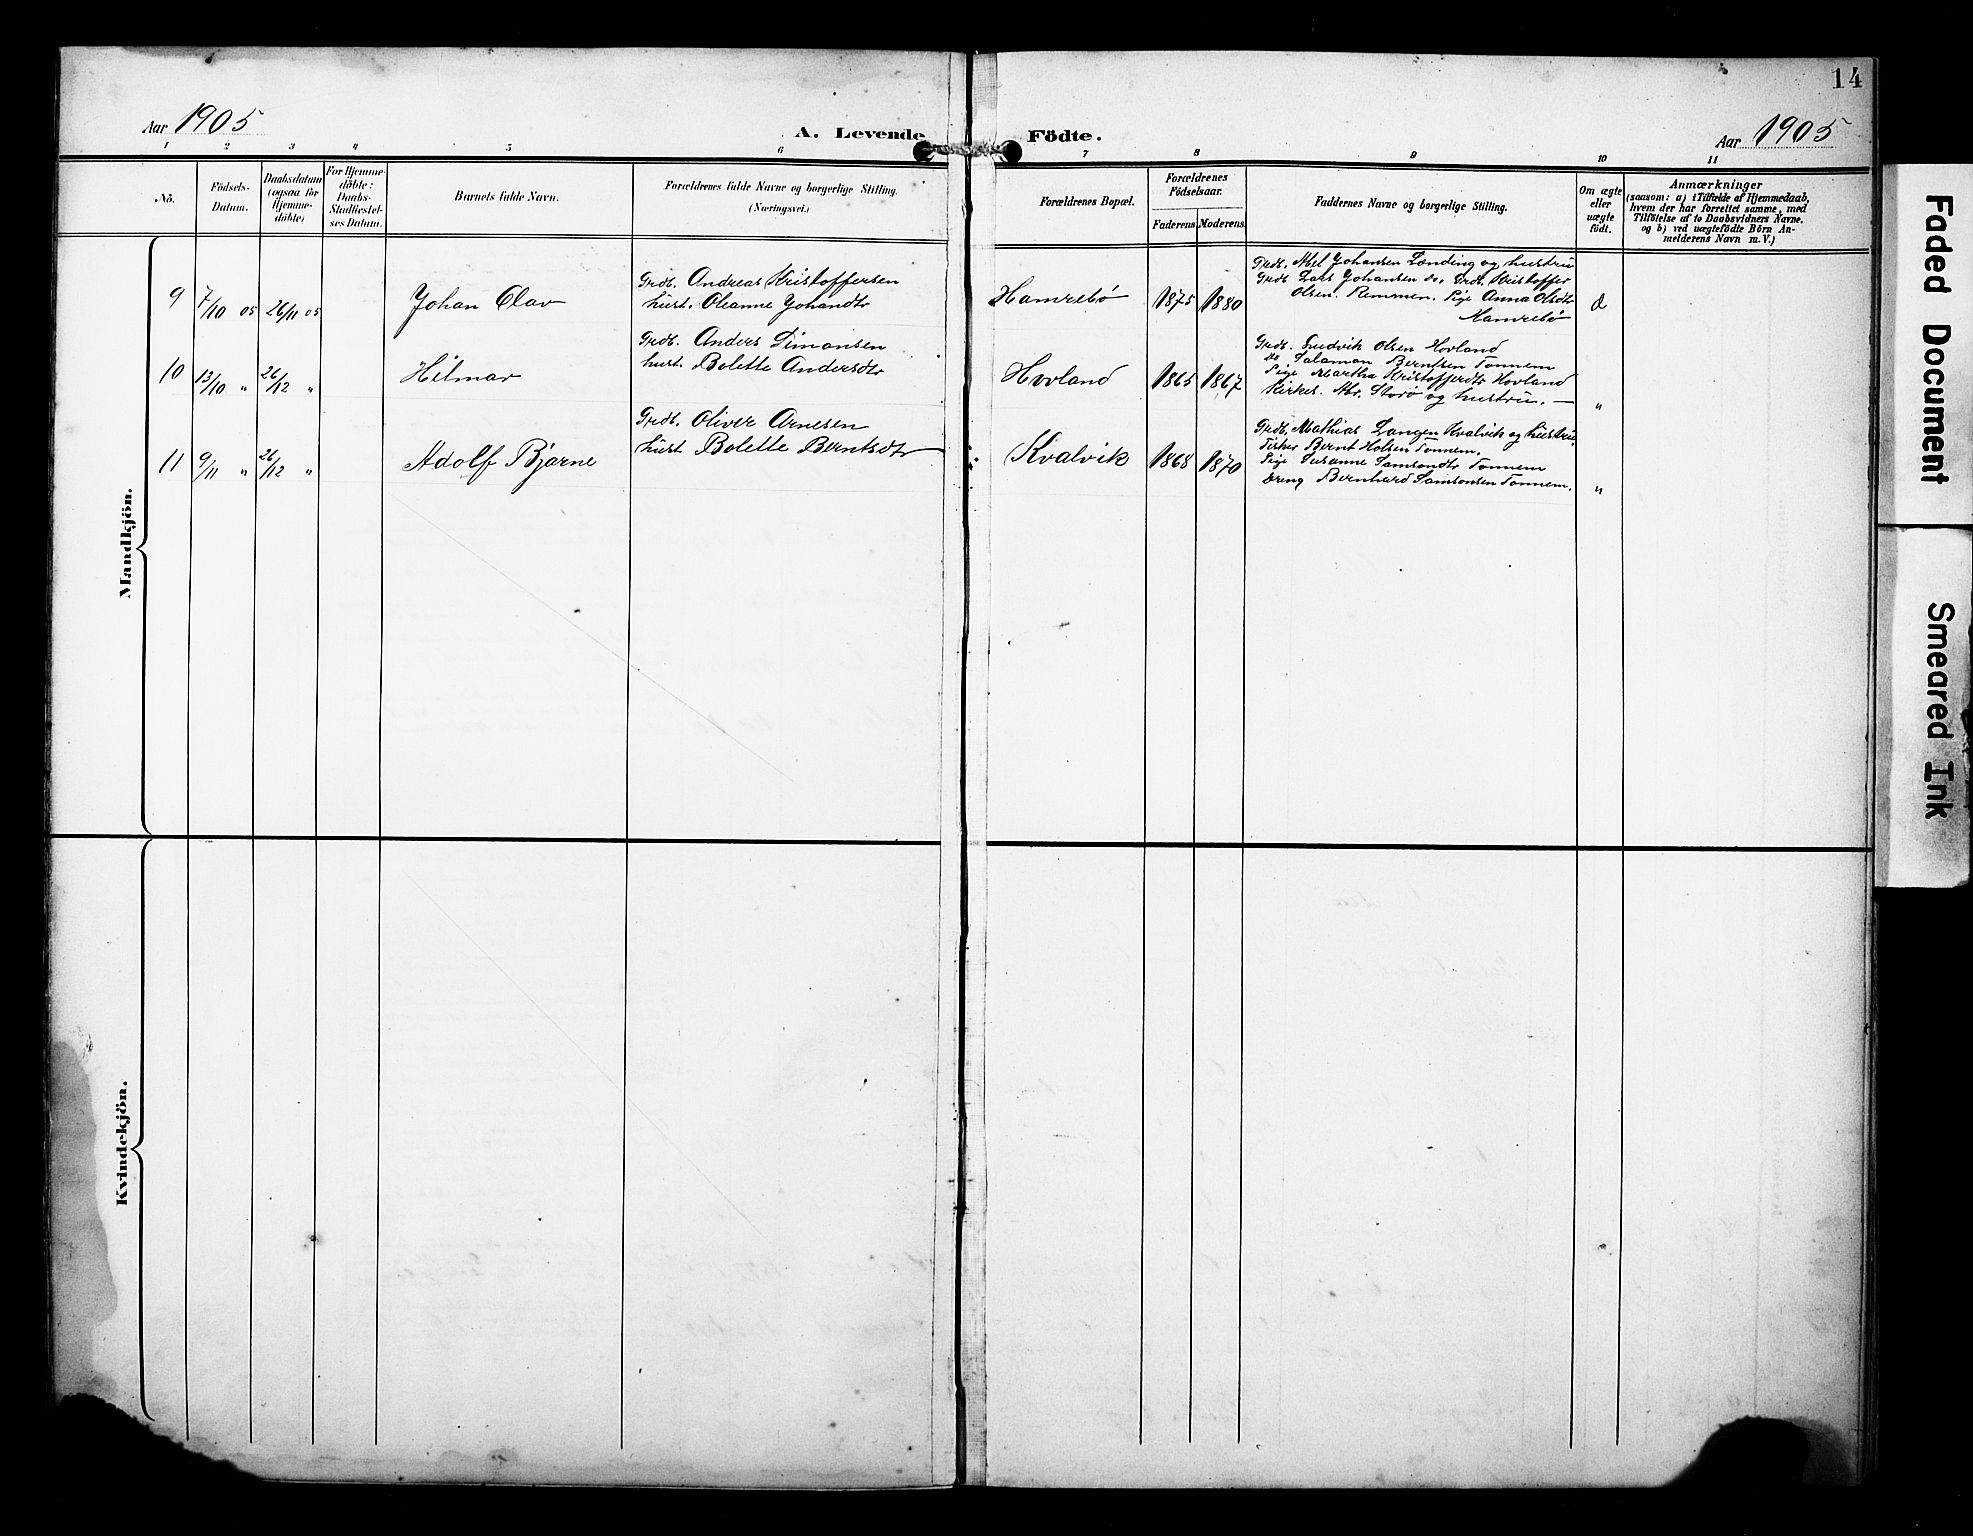 14
Aar 1905
A. Levende Födte.
Aar 1905
1 2 3 4 5 6 7 8 9 10 11
No.
Födsels-
Datum.
Daabsdatum
(ogsaa for
Hjemme-
döbte)
For Hjemme-
döbte:
Daabs-
Stadfæstel-
ses Datum.
Barnets fulde Navn.
Forældrenes fulde Navne og borgerlige Stilling.
(Næringsvei.)
Forældrenes Bopæl.
Forældrenes
Födselsaar.
Faderens
Moderens
Faddernes Navne og borgerlige Stilling.
Om ægte
eller
uægte
födt.
Anmærkninger
(saasom: a) i Tilfælde af Hjemmedaab,
hvem der har forrettet samme, med
Tilföielse af to Daabsvidners Navne.
og b) ved uægtefödte Börn An-
melderens Navn m. V.)
Mandkjön.
9 7/10 05 26/11 05 Johan Olav
Grdb. Andreas Kristoffersen
hust. Oleanne Johansdtr
Hamrebø 1875 1880
Grdb. Abel Johansen Lending og hustru
Grdb. Lars Johansen do. Grdb. Kristoffer
Olsen. Remmen. Pige Anna Olsdtr
Hamrebø
10 13/10 " 26/12 " Hilmar
Grdb. Anders Simonsen
hust. Bolette Andersdtr
Hovland 1865 1867
Grdb. Ludvik Olsen Hovland
do Salamon Berntsen Tonnem
Pige Martha Kristoffersdtr Hovland
Kirkes. Abr. Storø og hustru. —
"
11 9/11 " 26/12 " Adolf Bjarne
Grdb. Oliver Arnesen
hust Bolette Berntsdtr
Kvalvik 1868 1870
Grdb. Mathias Langen Kvalvik og hustru,
Fisker Bernt Holsen Tonnem.
Pige Susanne Samsondtr Tonnem
Dreng Bernhard Samsonsen Tonnem.
"
Kvindekjön.
Faded Document
Smeared Ink